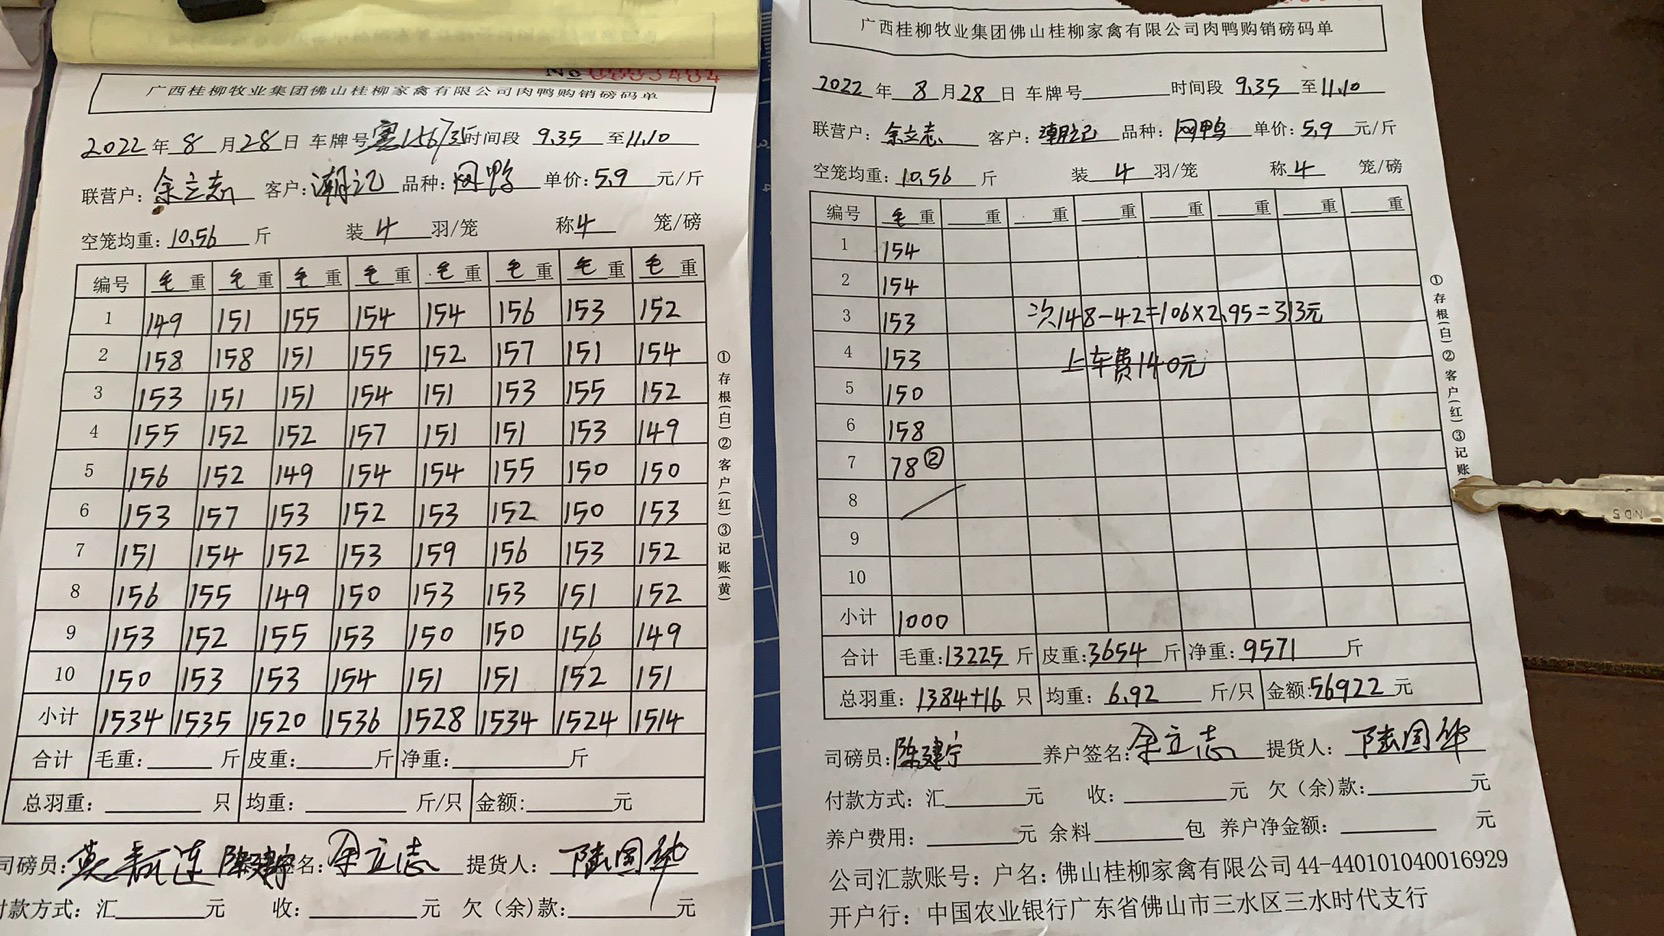 No 0003484
广西桂柳牧业集团佛山桂柳家禽有限公司肉鸭购销磅码单
2022年8月28日 车牌号 时间段 9.35 至11.10
联营户：余立志 客户：潮记 品种：网鸭 单价：5.9 元/斤
空笼均重：10.56 斤 装 4 羽/笼 称4 笼/磅
编号 毛重 毛重 毛重 毛重 毛重 毛重 毛重 毛重
1 149 151 155 154 154 156 153 152
2 158 158 151 155 152 157 151 154
3 153 151 151 154 151 153 155 152
4 155 152 152 157 151 151 153 149
5 156 152 149 154 154 155 150 150
6 153 157 153 152 153 152 150 153
7 151 154 152 153 159 156 153 152
8 156 155 149 150 153 153 151 152
9 153 152 155 153 150 150 156 149
10 150 153 153 154 151 151 152 151
小计 1534 1535 1520 1536 1528 1534 1524 1514
合计 毛重：斤 皮重：斤 净重：斤
总羽重：只 均重：斤/只 金额：元
司磅员： 陈建宁 签名：余立志 提货人：陆国华
付款方式：汇 元 收： 元 欠（余）款： 元
①存根(白)②客户(红)③记账(黄)
广西桂柳牧业集团佛山桂柳家禽有限公司肉鸭购销磅码单
2022年8月28日 车牌号 时间段 9.35 至11.10
联营户：余立志 客户：潮记 品种：网鸭 单价：5.9 元/斤
空笼均重：10.56 斤 装 4 羽/笼 称4 笼/磅
编号 毛重 重 重 重 重 重 重 重
1 154
2 154
3 153 次148-42=106×2.95=313元
4 153 上车费140元
5 150
6 158
7 78②
8
9
10
小计 1000
合计 毛重：13225斤 皮重：3654斤 净重：9571 斤
总羽重：1384+16 只 均重：6.92 斤/只 金额：56922 元
司磅员：陈建宁 养户签名：余立志 提货人：陆国华
付款方式：汇 元 收： 元 欠（余）款： 元
养户费用： 元 余料 包 养户净金额： 元
公司汇款账号：户名：佛山桂柳家禽有限公司 44-440101040016929
开户行：中国农业银行广东省佛山市三水区三水时代支行
①存根(白)②客户(红)③记账
ND5